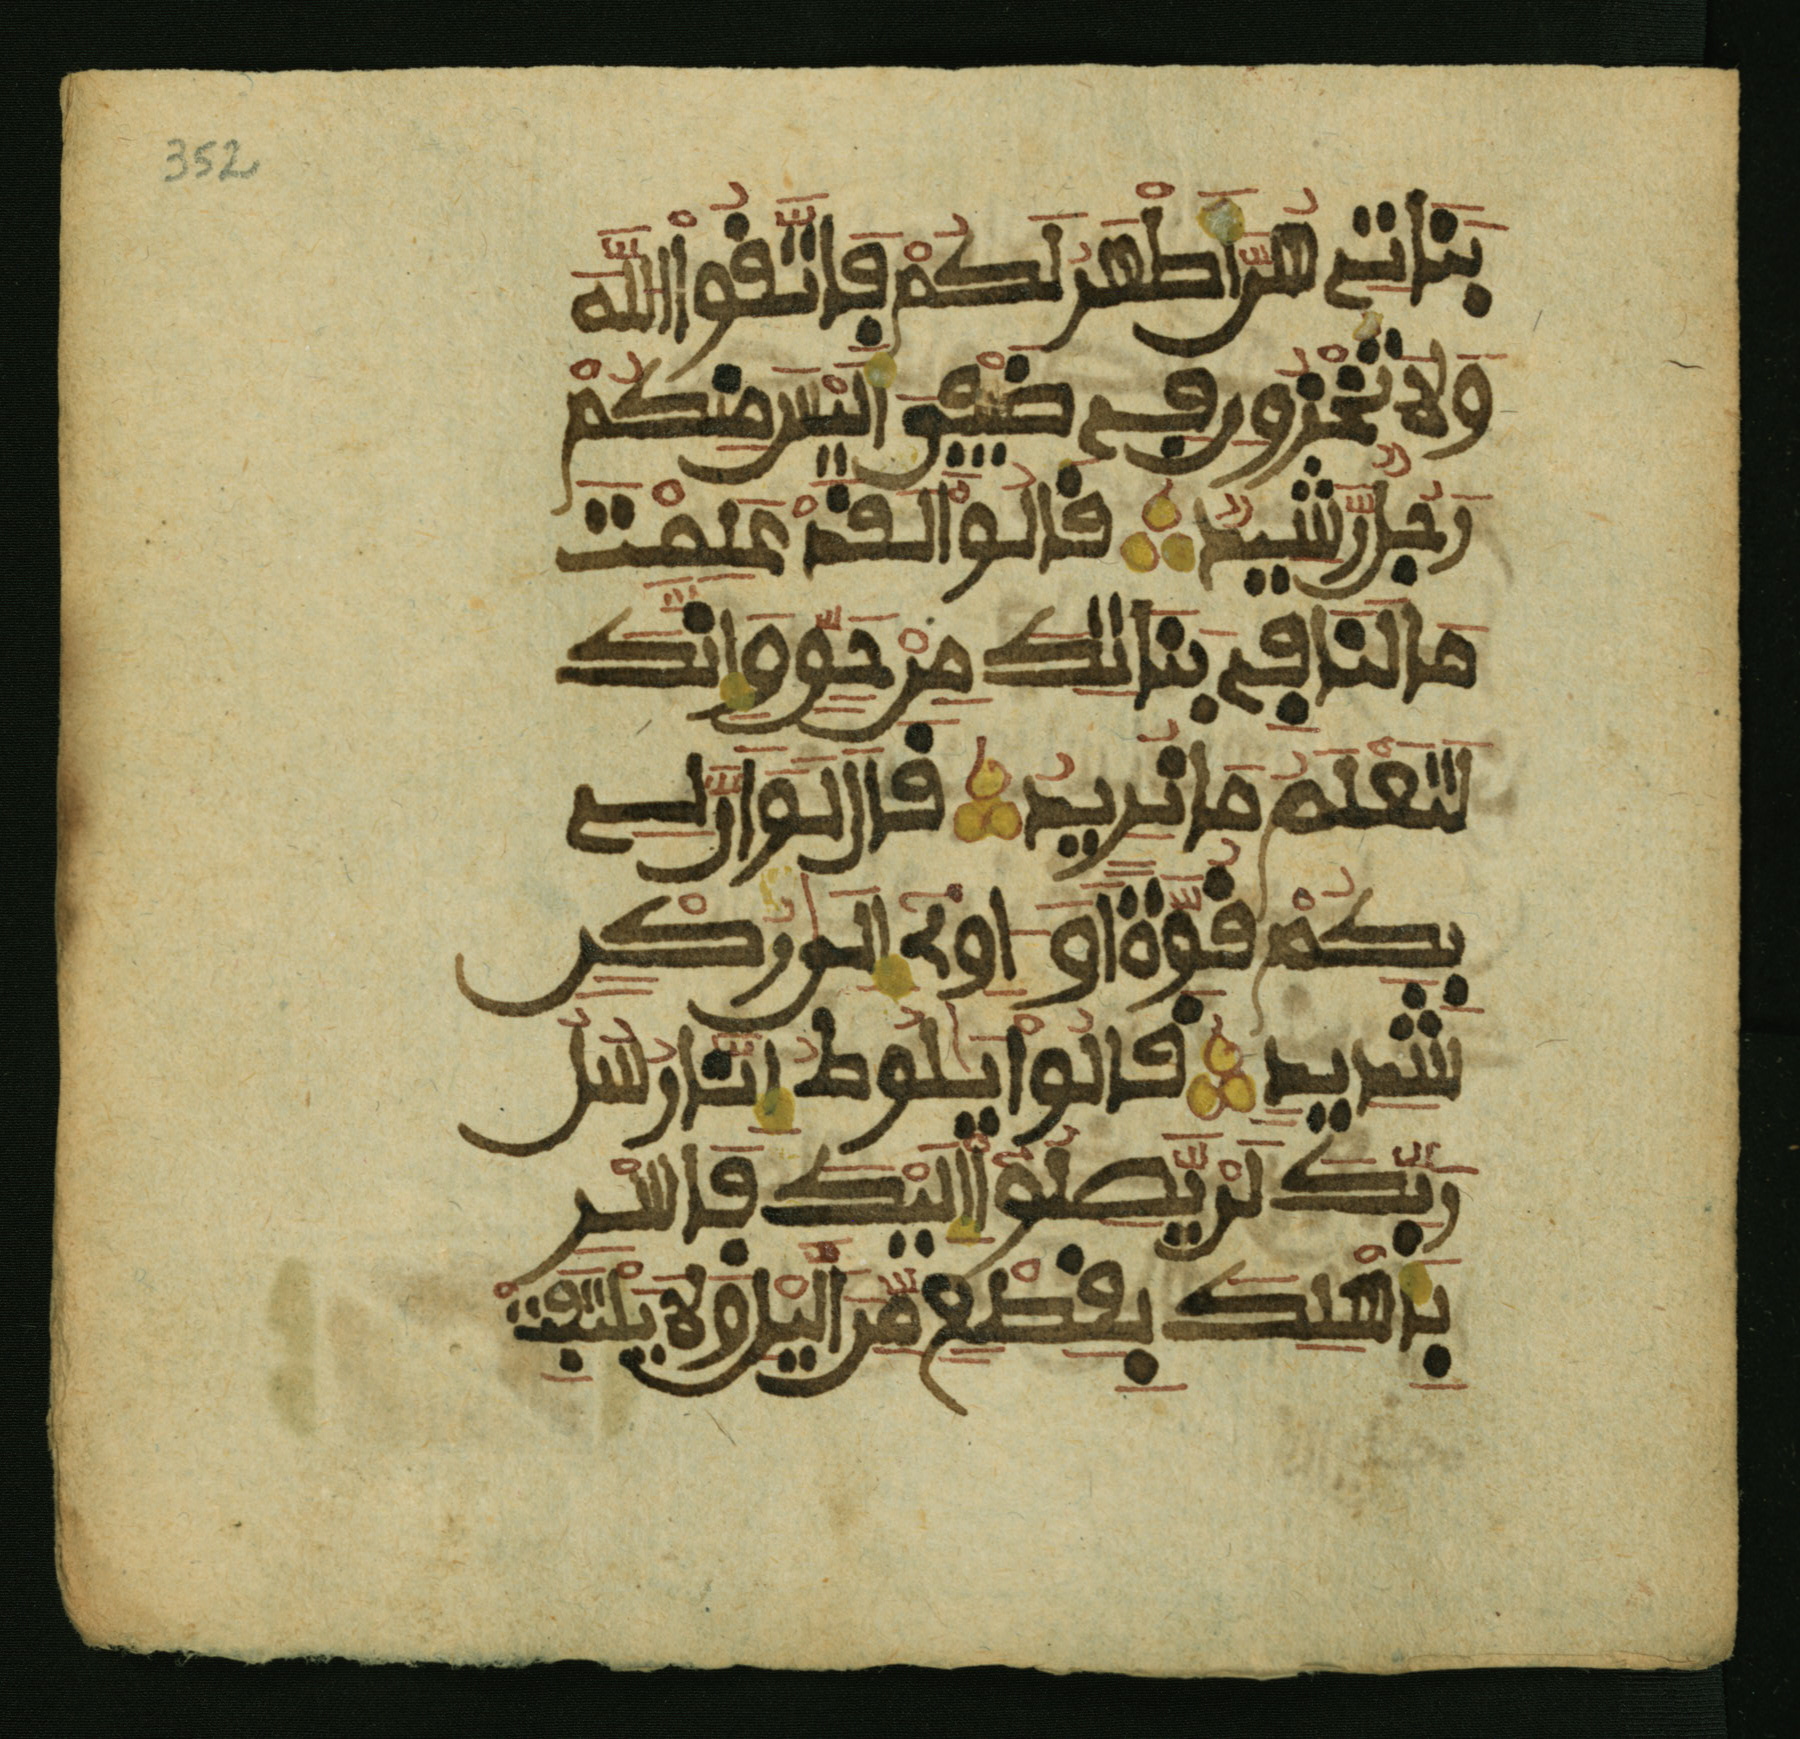 352
بَنَاتِي هُنَّ أَطْهَرُ لَكُمْ فَاتَّقُوا اللَّهَ
وَلَا تُخْزُونِ فِي ضَيْفِي أَلَيْسَ مِنكُمْ
رَجُلٌ رَّشِيدٌ قَالُوا لَقَدْ عَلِمْتَ
مَا لَنَا فِي بَنَاتِكَ مِنْ حَقٍّ وَإِنَّكَ
لَتَعْلَمُ مَا نُرِيدُ قَالَ لَوَ انَّ لِي
بِكُمْ قُوَّةً أَوَ اوِي إِلَىٰ رُكْنٍ
شَدِيدٍ قَالُوا يَٰلُوطُ إِنَّا رُسُلُ
رَبِّكَ لَنْ يَّصِلُوا إِلَيْكَ فَاسْرِ
بِأَهْلِكَ بِقِطْعٍ مِّنَ الَّيْلِ وَلَا يَلْتَفِتْ